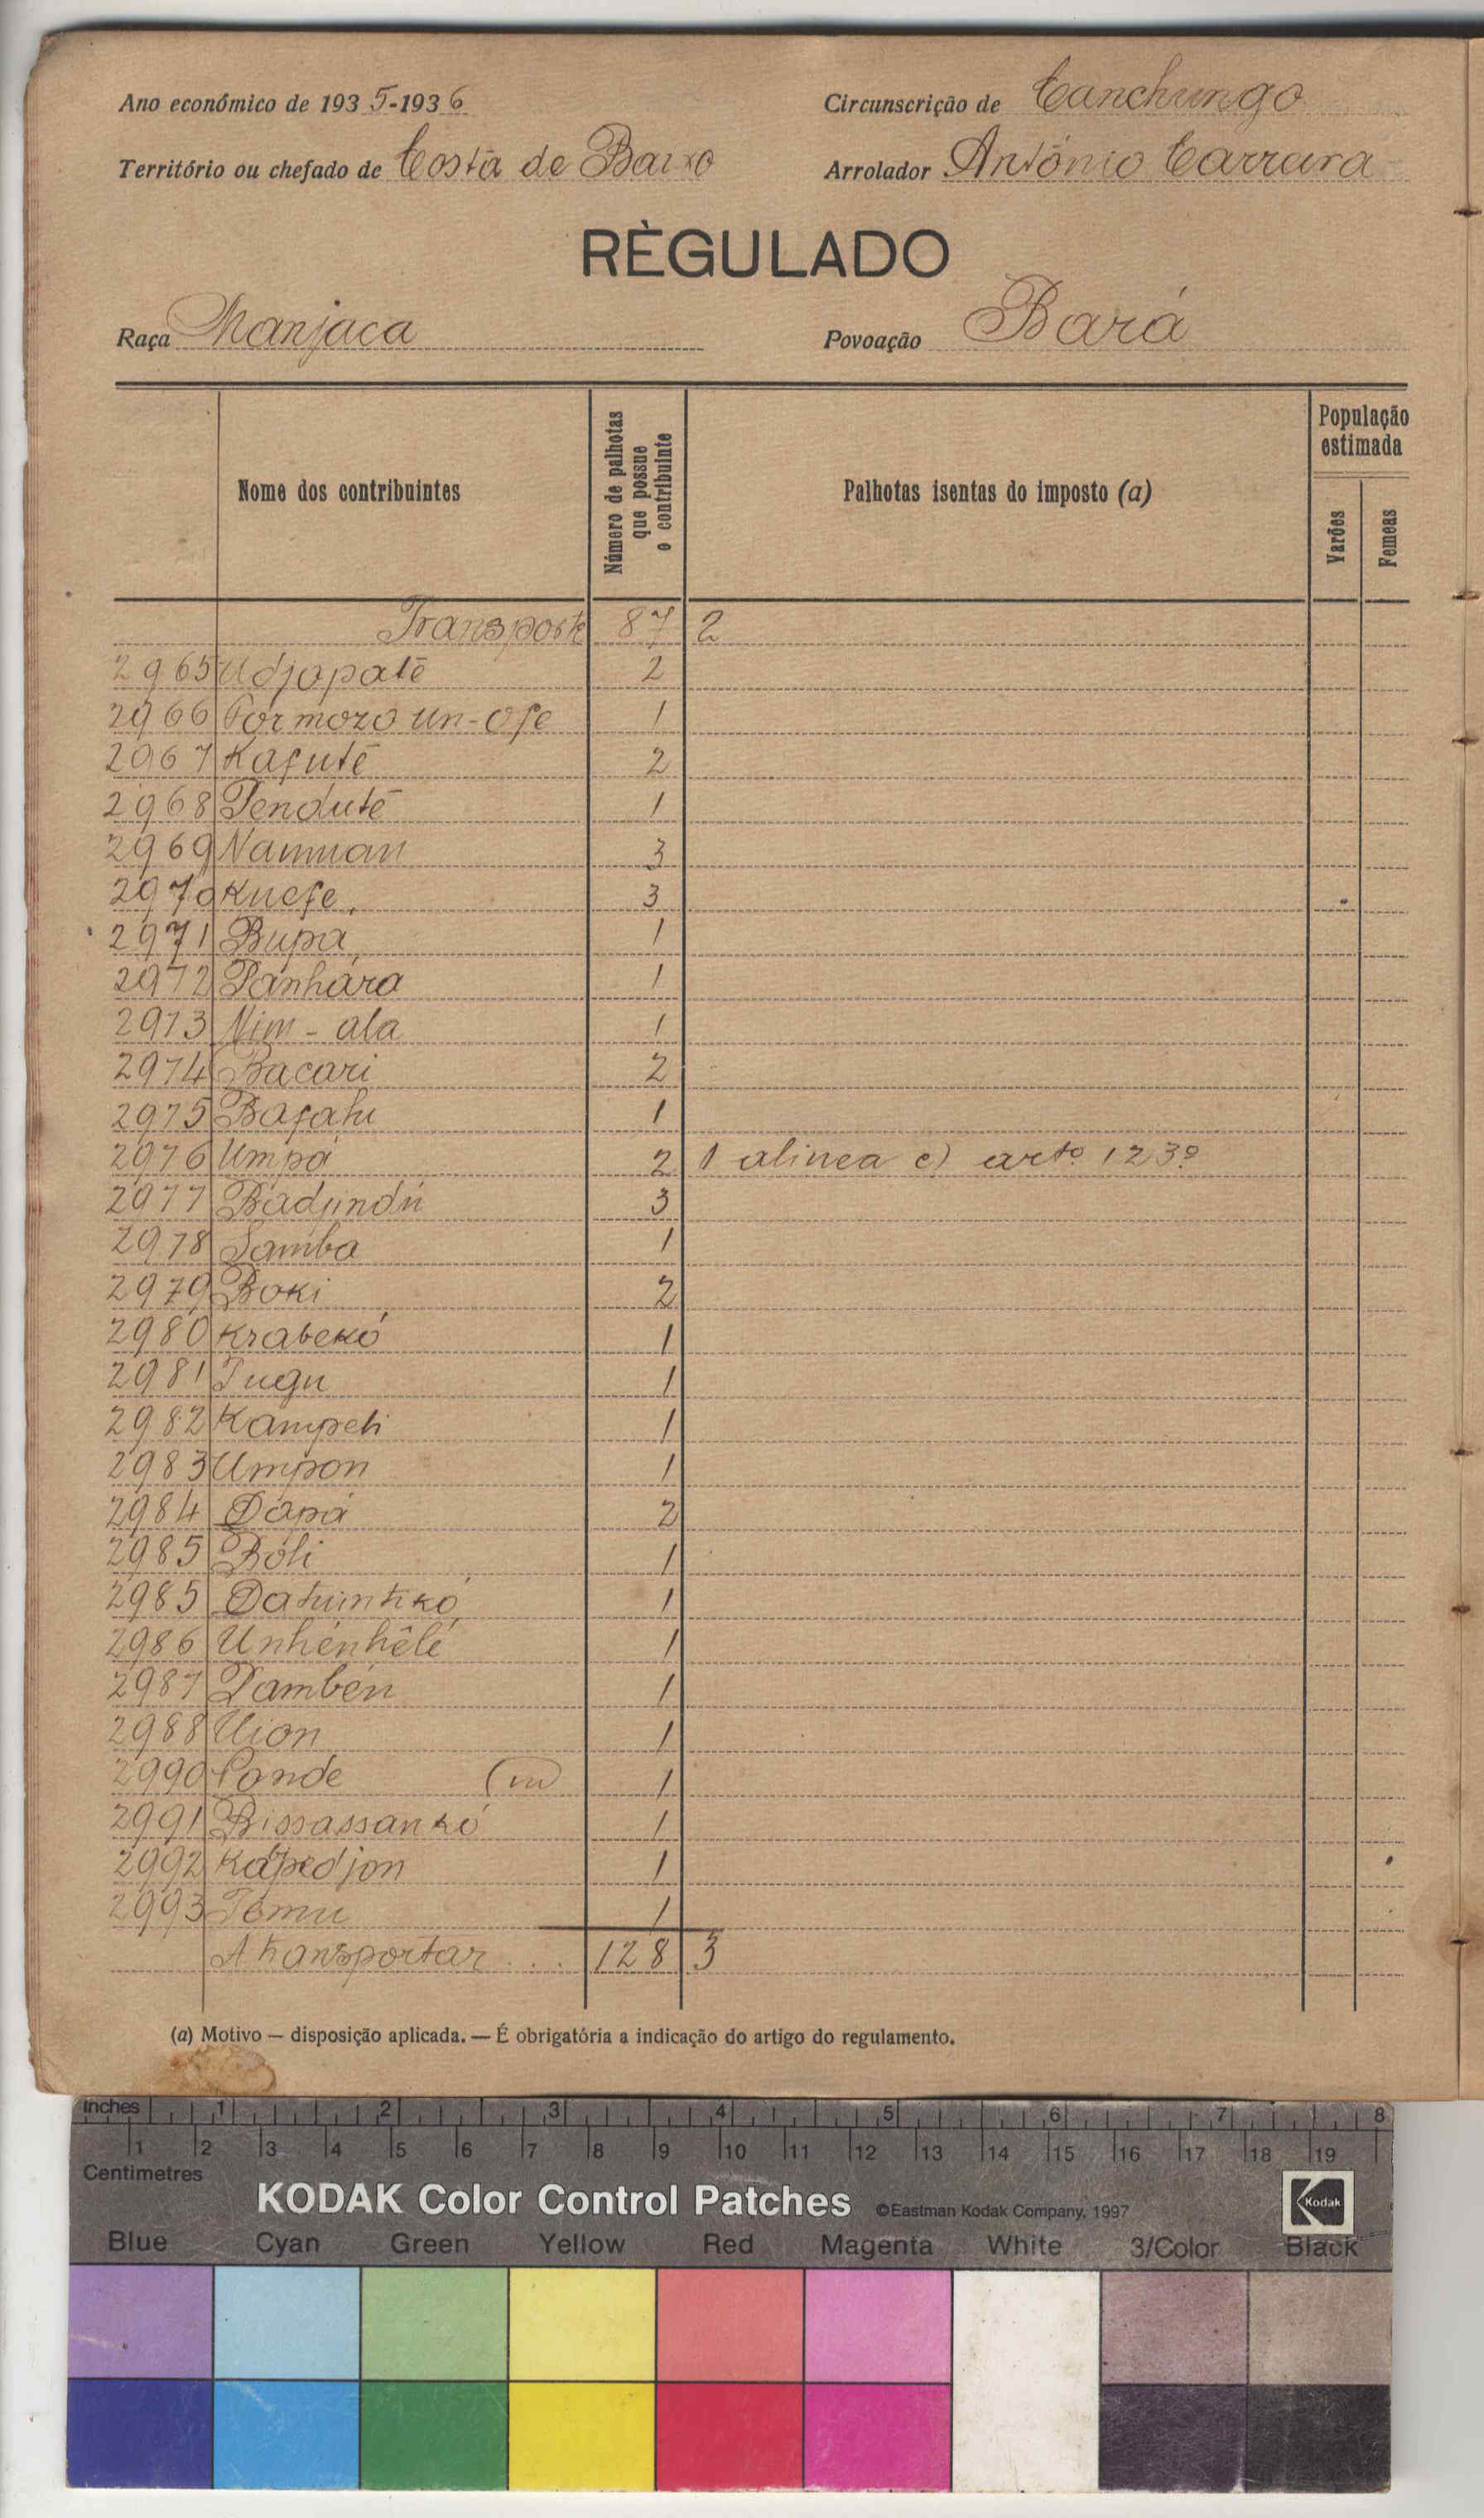 Ano económico de 1935-1936
Circunscrição de Canchungo
Território ou chefado de Costa de Baixo
Arrolador António Carreira
RÈGULADO
Raça Manjaca
Povoação Bará
Nome dos contribuintes
Número de palhotas que possue o contribuinte
Palhotas isentas do imposto (a)
População estimada
Varões
Femeas
Transporte 87 2
2965 Udjopatē 2
2966 Formozo Un-Ofe 1
2967 Kafutē 2
2968 Pendutē 1
2969 Naunuan 3
2970 Kuefe 3
2971 Bupá 1
2972 Panhára 1
2973 Nim-ala 1
2974 Bacari 2
2975 Bafahu 1
2976 Umpá 2 1 alinea c) artº 123º
2977 Badjindú 3
2978 Samba 1
2979 Boki 2
2980 Krabekó 1
2981 Jugu 1
2982 Kampeti 1
2983 Umpon 1
2984 Dápá 2
2985 Bóli 1
2985 1
2986 Unhénhêlé 1
2987 Pambén 1
2988 Uion 1
2990 Conde 1
2991 Bissassankó 1
2992 Kapedjon 1
2993 Tomu 1
A transportar ... 128 3
(a) Motivo — disposição aplicada. — É obrigatória a indicação do artigo do regulamento.
Inches 1 2 3 4 5 6 7 8
1 2 3 4 5 6 7 8 9 10 11 12 13 14 15 16 17 18 19
Centimetres
KODAK Color Control Patches ©Eastman Kodak Company, 1997 Kodak
Blue Cyan Green Yellow Red Magenta White 3/Color Black